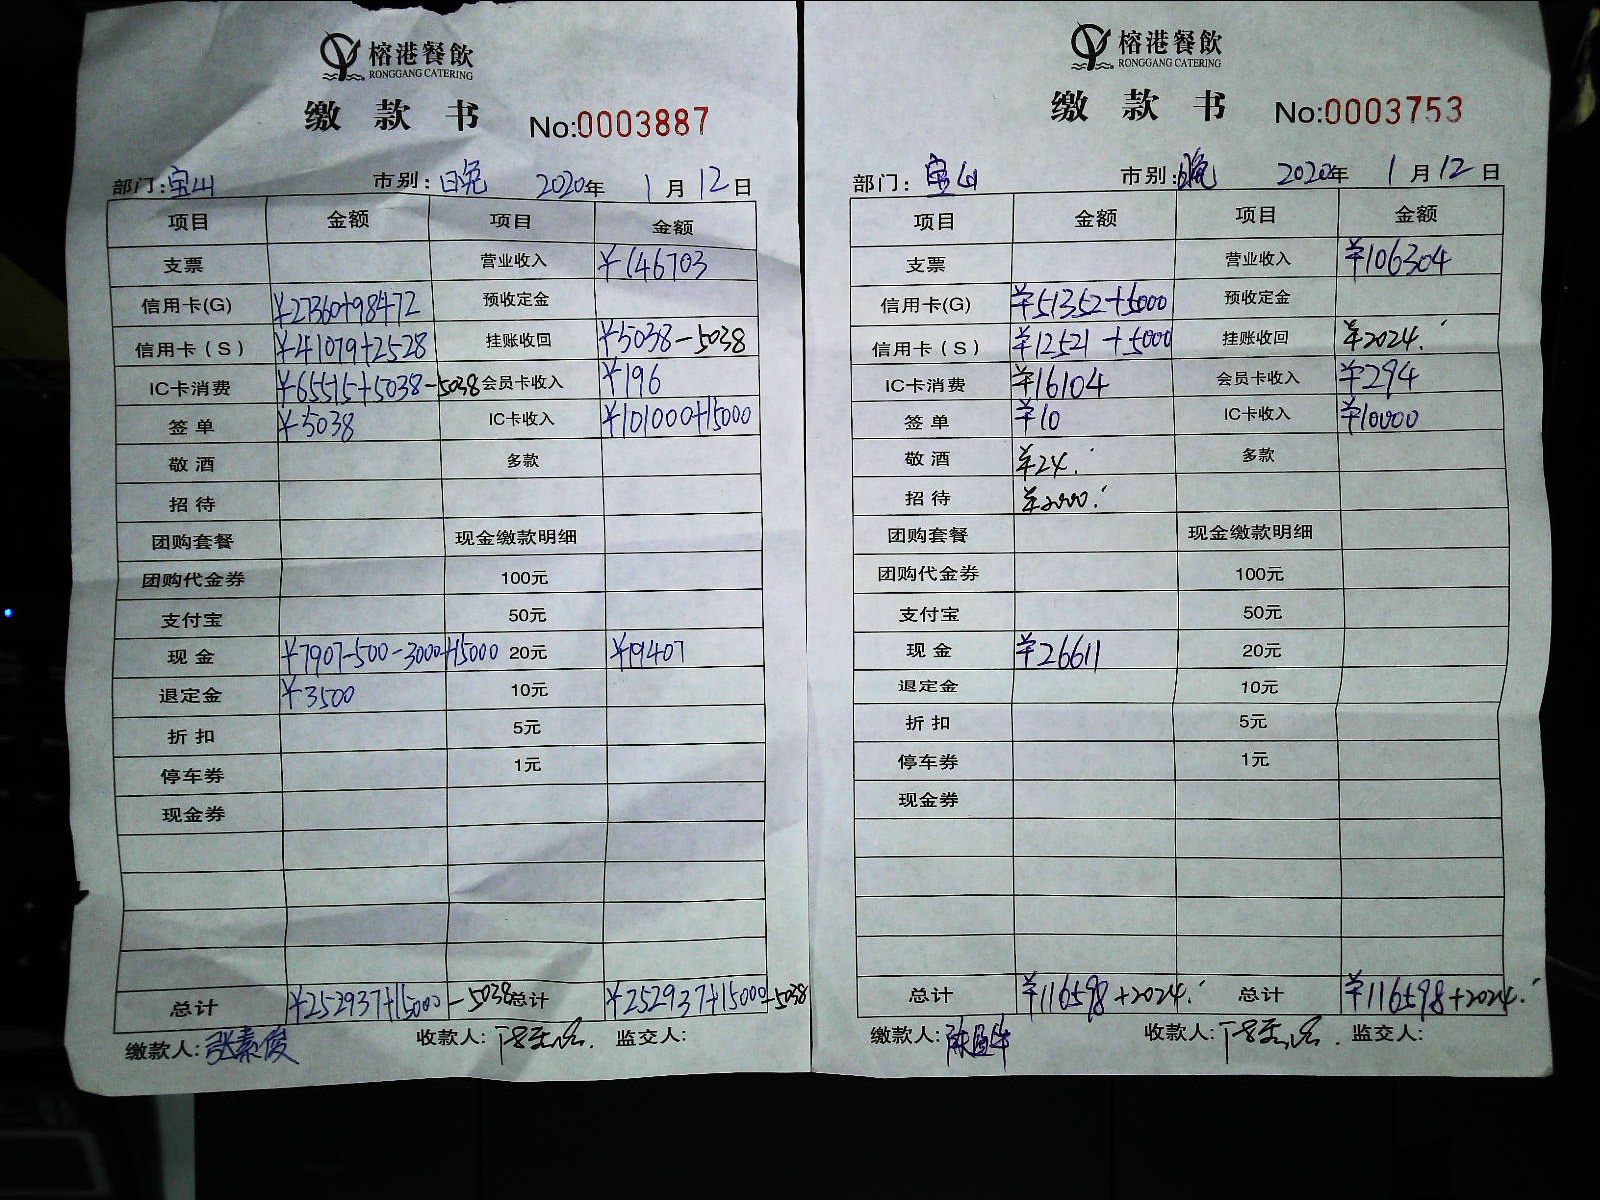 榕港餐飲
RONGGANG CATERING
缴款书 No:0003887
部门:宝山 市别:日晚 2020年 1月12日
项目 金额 项目 金额
支票 营业收入 ¥146703
信用卡(G) ¥27360+98472 预收定金
信用卡(S) ¥41079+2528 挂账收回 ¥5038-5038
IC卡消费 ¥65515+5038-5038 会员卡收入 ¥196
签单 ¥5038 IC卡收入 ¥101000+15000
敬酒 多款
招待
团购套餐 现金缴款明细
团购代金券 100元
支付宝 50元
现金 ¥7907-500-3000+15000 20元 ¥19407
退定金 ¥3500 10元
折扣 5元
停车券 1元
现金券
总计 ¥252937+15000-5038 总计 ¥252937+15000-5038
缴款人:张素俊 收款人: 监交人:
榕港餐飲
RONGGANG CATERING
缴款书 No:0003753
部门:宝山 市别:晚 2020年 1月12日
项目 金额 项目 金额
支票 营业收入 ¥106304
信用卡(G) ¥51352+5000 预收定金
信用卡(S) ¥12521+5000 挂账收回 ¥2024.
IC卡消费 ¥16104 会员卡收入 ¥294
签单 ¥10 IC卡收入 ¥10000
敬酒 ¥24. 多款
招待 ¥2000.
团购套餐 现金缴款明细
团购代金券 100元
支付宝 50元
现金 ¥26611 20元
退定金 10元
折扣 5元
停车券 1元
现金券
总计 ¥116598+2024. 总计 ¥116598+2024.
缴款人: 收款人: 监交人: